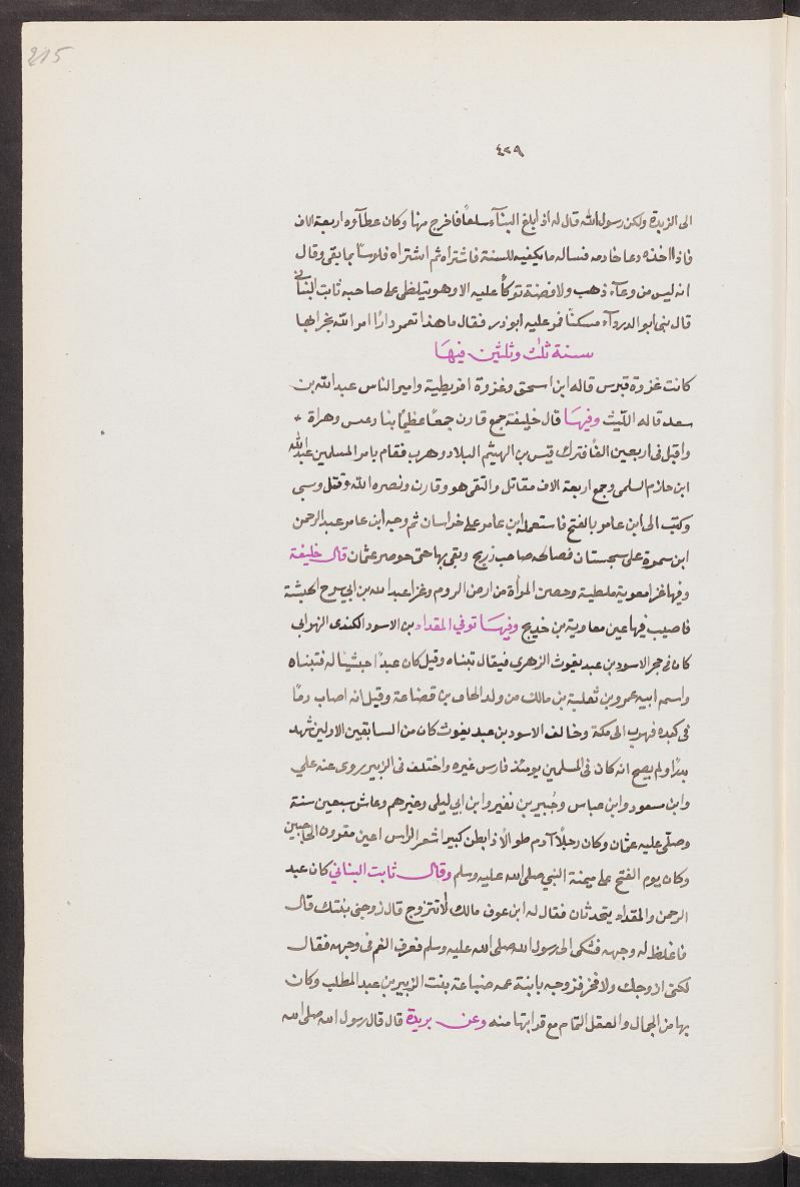 215
٤٢٩
الى الزبدة ولكن رسول الله قال له اذ ابلغ البنآء سلعًا فاخرج منها وكان عطآوه اربعة الاف
فاذا اخذه دعا خادمه فسأله ما يكفيه للسنة فاشتراه ثم اشتراه فلوسًا بما بقى وقال
انه ليس من وعآء ذهب ولا فضة توكأ عليه الا وهو يتلظى على صاحبه ثابت البناني
قال بنى ابو الدردآء مسكنًا فمر عليه ابو ذر فقال ما هذا تعمر دارًا امر الله بخرابها
سنة ثلث وثلثين فيها
كانت غزوة قبرس قاله ابن اسحق وغزوة افريطية وامير الناس عبد الله بن
سعد قاله الليث وفيها قال خليفة جمع قارن جمعًا عظيمًا بنا دعس وهراة
واقبل فى اربعين الفًا فترك قيس بن الهيثم البلاد وهرب فقام بامر المسلمين عبد الله
ابن حازم السلمى وجمع اربعة الاف مقاتل والتقى هو وقارن ونصره الله وقتل وسبى
وكتب الى ابن عامر بالفتح فاستعمله ابن عامر على خراسان ثم وجه ابن عامر عبد الرحمن
ابن سمرة على سجستان فصالحه صاحب زرنج وبقى بها حتى حوصر عثمان قال خليفة
وفيها غزا معوية ملطية وحصن المرأة من ارض الروم وغزا عبد الله بن ابي سرح الحبشة
فاصيب فيها عين معاوية بن خديج وفيها توفي المقداد بن الاسود الكندى الزهرابى
كان فى حجر الاسود بن عبد يغوث الزهرى فيقال تبناه وقيل كان عبدًا حبشيًا له فتبناه
واسم ابيه عمرو بن ثعلبة بن مالك من ولد الحاف بن قضاعة وقيل انه اصاب دمًا
فى كنده فهرب الى مكة وحالف الاسود بن عبد يغوث كان من السابقين الاولين شهد
بدرًا ولم يصح انه كان فى المسلمين يومئذ فارس غيره واختلف فى الزبير روى عنه علي
وابن مسعود وابن عباس وجُبير بن نفير وابن ابي ليلى وغيرهم وعاش سبعين سنة
وصلّى عليه عثمان وكان رجلًا آدم طوالا ذا بطن كبير اشعر الراس اعين مقرون الحاجبين
وكان يوم الفتح على ميمنة النبي صلى الله عليه وسلم وقال ثابت البناني كان عبد
الرحمن والمقداد يتحدثان فقال له ابن عوف مالك لا تتزوج قال زوجنى بنتك قال
فاغلظ له وجبهه فشكى الى رسول الله صلى الله عليه وسلم فعرف الغم فى وجهه فقال
لكنى ازوجك ولا فخر فزوجه بابنة عمه ضباعة بنت الزبير بن عبد المطلب وكان
بها من الجمال والعقل التام مع قرابتها منه وعن بريدة قال قال رسول الله صلى الله